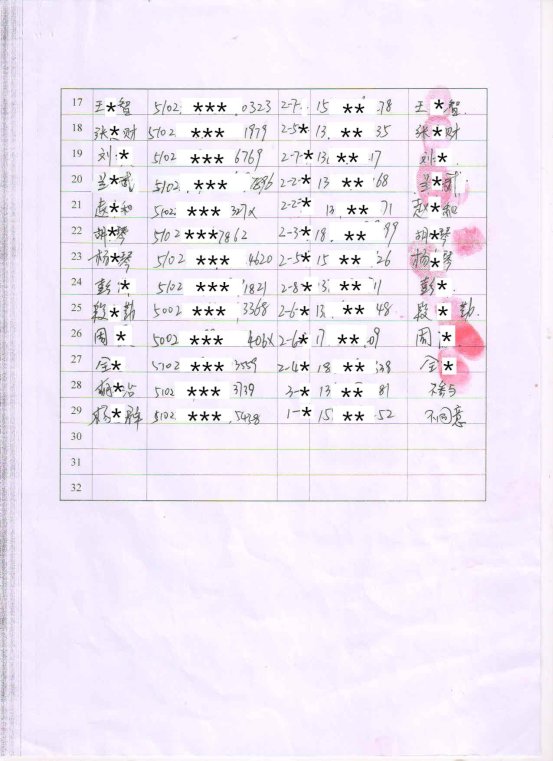 17 王*智 5102 *** 0323 2-7 15 ** 78 王*智
18 张*财 5102 *** 1979 2-5* 13 ** 35 张*财
19 刘* 5102 *** 6769 2-7-* 13 ** 17 刘*
20 兰* 5102 *** 2-2-* 13 ** 68 兰*
21 赵*和 5102 *** 2-2-* 13 ** 71 赵*和
22 胡*琴 5102 *** 7862 2-3-* 18 ** 99 胡*琴
23 杨*琴 5102 *** 4620 2-5-* 15 ** 26 杨*琴
24 彭* 5102 *** 1821 2-8-* 13 ** 11 彭*
25 段*勤 5002 *** 3368 2-6-* 13 ** 48 段*勤
26 周* 5002 *** 406X 2-6-* 17 ** 09 周*
27 全* 5102 *** 3559 2-4-* 18 ** 全*
28 胡* 5102 *** 3739 3-* 13 ** 81 不参与
29 杨*群 5102 *** 5428 1-* 15 ** 52 不同意
30
31
32